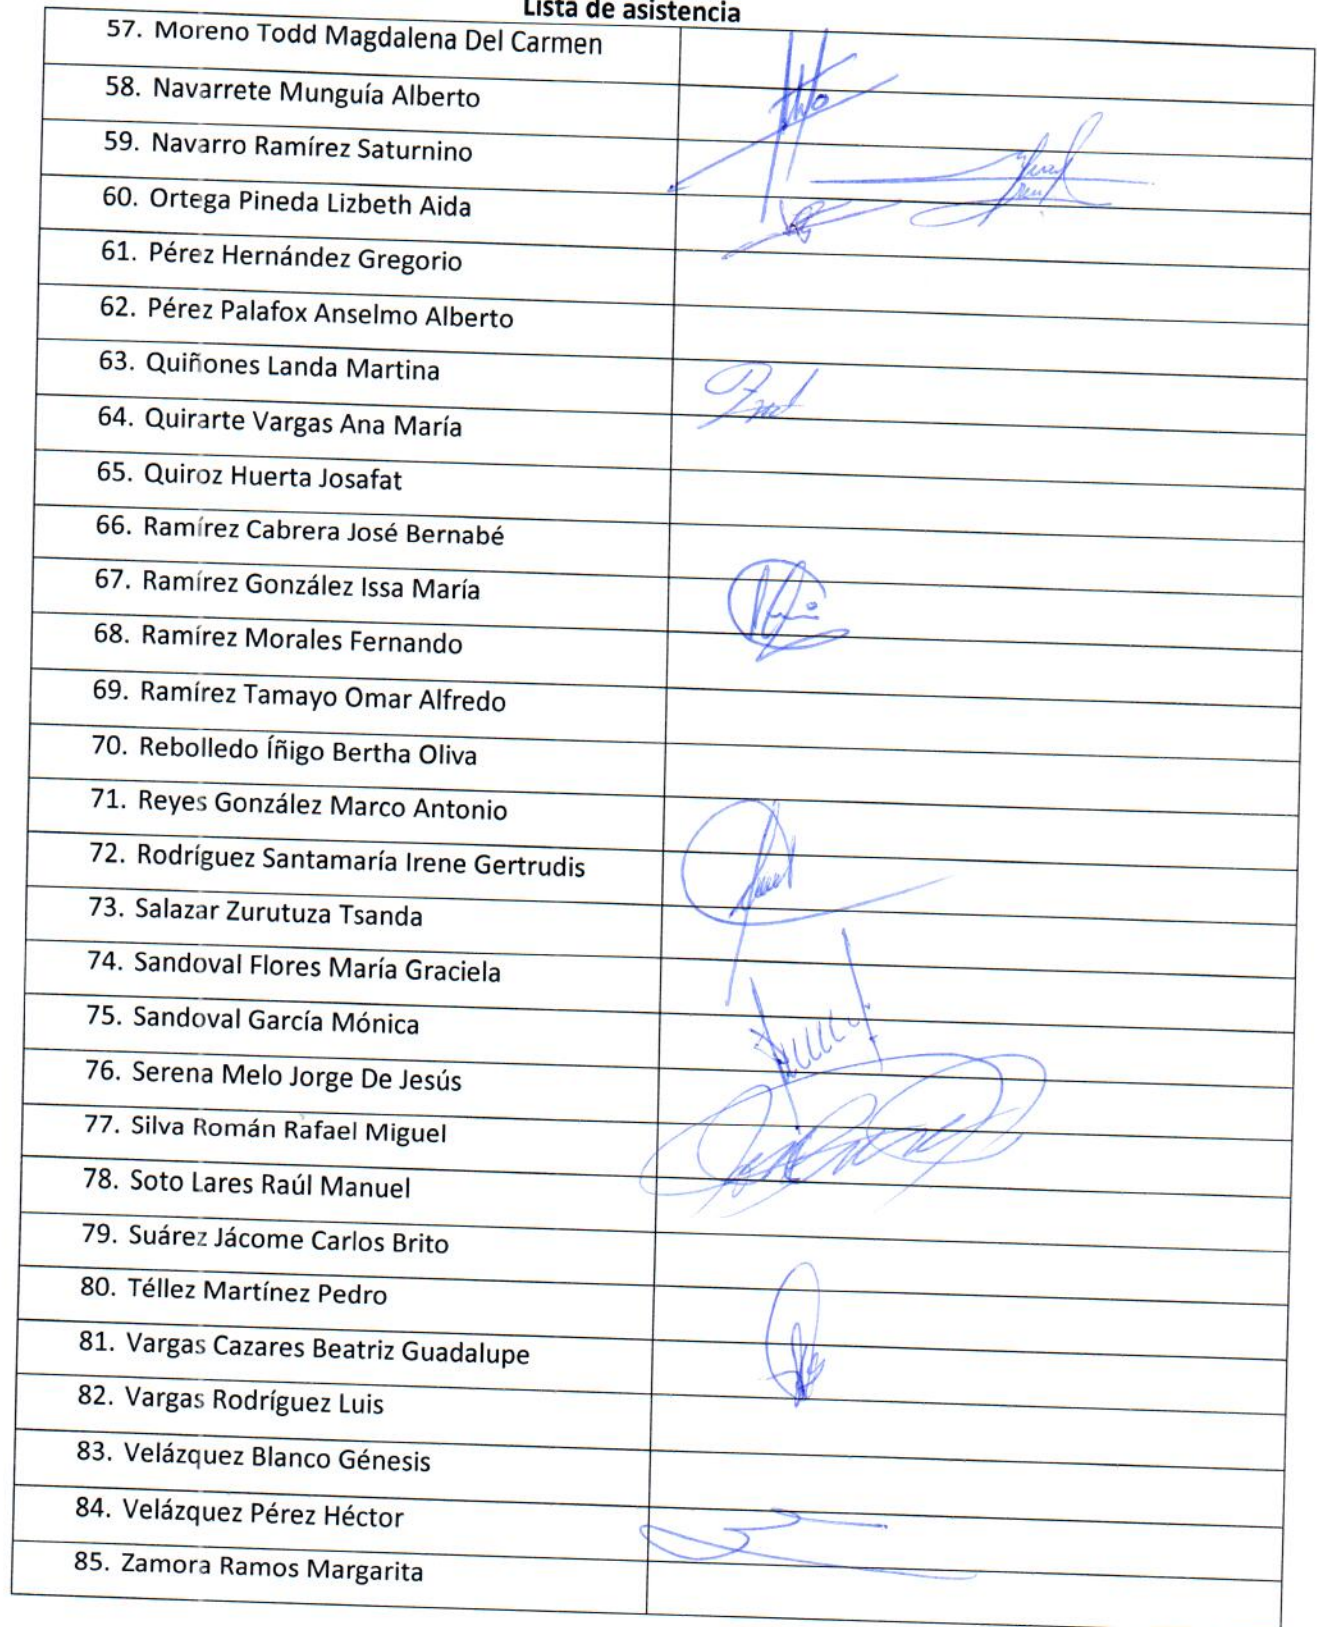 Lista de asistencia
57. Moreno Todd Magdalena Del Carmen
58. Navarrete Munguía Alberto
59. Navarro Ramírez Saturnino
60. Ortega Pineda Lizbeth Aida
61. Pérez Hernández Gregorio
62. Pérez Palafox Anselmo Alberto
63. Quiñones Landa Martina
64. Quirarte Vargas Ana María
65. Quiroz Huerta Josafat
66. Ramírez Cabrera José Bernabé
67. Ramírez González Issa María
68. Ramírez Morales Fernando
69. Ramírez Tamayo Omar Alfredo
70. Rebolledo Íñigo Bertha Oliva
71. Reyes González Marco Antonio
72. Rodríguez Santamaría Irene Gertrudis
73. Salazar Zurutuza Tsanda
74. Sandoval Flores María Graciela
75. Sandoval García Mónica
76. Serena Melo Jorge De Jesús
77. Silva Román Rafael Miguel
78. Soto Lares Raúl Manuel
79. Suárez Jácome Carlos Brito
80. Téllez Martínez Pedro
81. Vargas Cazares Beatriz Guadalupe
82. Vargas Rodríguez Luis
83. Velázquez Blanco Génesis
84. Velázquez Pérez Héctor
85. Zamora Ramos Margarita